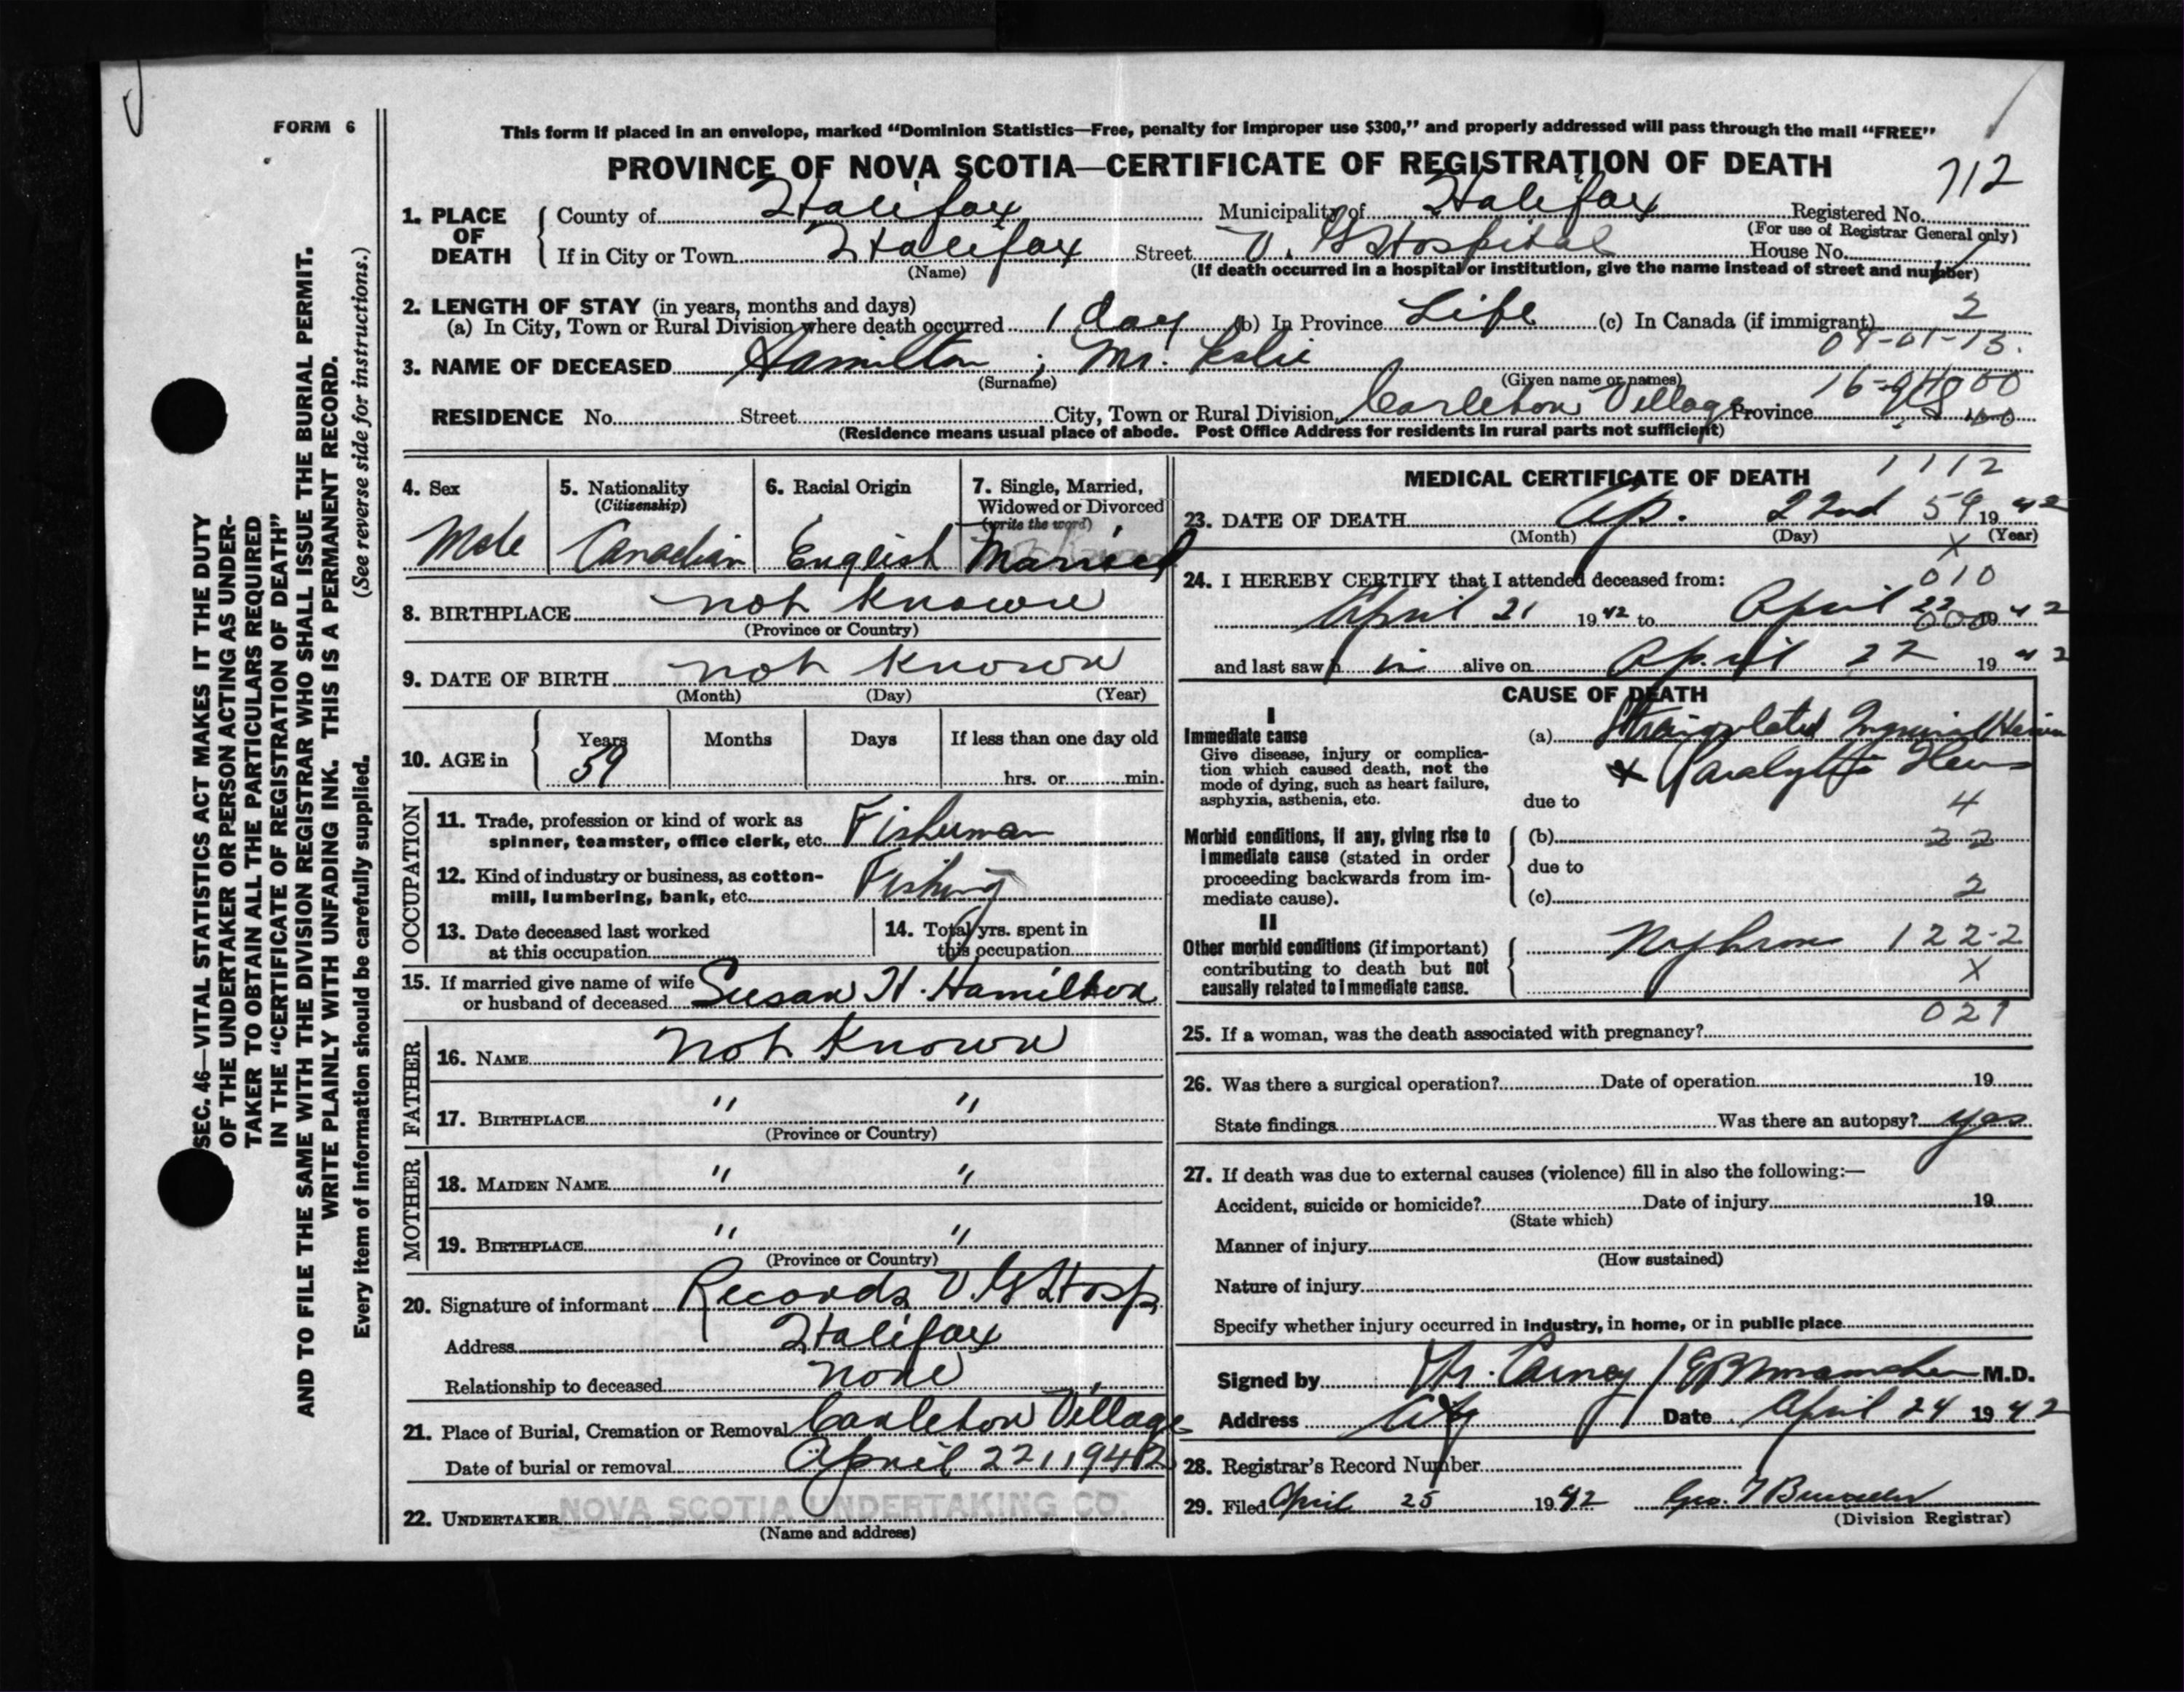 FORM 6
This form if placed in an envelope, marked “Dominion Statistics—Free, penalty for improper use $300,” and properly addressed will pass through the mail “FREE”
PROVINCE OF NOVA SCOTIA—CERTIFICATE OF REGISTRATION OF DEATH
712
1. PLACE OF DEATH { County of Halifax Municipality of Halifax Registered No.
(For use of Registrar General only)
If in City or Town Halifax Street V. G Hospital House No.
(Name) (If death occurred in a hospital or institution, give the name instead of street and number)
2. LENGTH OF STAY (in years, months and days)
(a) In City, Town or Rural Division where death occurred 1 day (b) In Province Life (c) In Canada (if immigrant) 2
3. NAME OF DECEASED Hamilton ; Mr. Leslie
(Surname) (Given name or names)
RESIDENCE No. Street City, Town or Rural Division Carleton Village Province
(Residence means usual place of abode. Post Office Address for residents in rural parts not sufficient)
4. Sex
Male
5. Nationality
(Citizenship)
Canadian
6. Racial Origin
English
7. Single, Married,
Widowed or Divorced
(write the word)
Married
8. BIRTHPLACE not known
(Province or Country)
9. DATE OF BIRTH not known
(Month) (Day) (Year)
10. AGE in { Years Months Days If less than one day old
59 hrs. or min.
OCCUPATION
11. Trade, profession or kind of work as
spinner, teamster, office clerk, etc. Fisherman
12. Kind of industry or business, as cotton-
mill, lumbering, bank, etc. Fishing
13. Date deceased last worked
at this occupation
14. Total yrs. spent in
this occupation
15. If married give name of wife
or husband of deceased Susan H. Hamilton
FATHER
16. NAME not known
17. BIRTHPLACE " "
(Province or Country)
MOTHER
18. MAIDEN NAME " "
19. BIRTHPLACE " "
(Province or Country)
20. Signature of informant Records V. G Hosp
Address Halifax
Relationship to deceased none
21. Place of Burial, Cremation or Removal Carleton Village
Date of burial or removal April 22, 1942
22. UNDERTAKER NOVA SCOTIA UNDERTAKING CO.
(Name and address)
MEDICAL CERTIFICATE OF DEATH 1112
23. DATE OF DEATH Ap. 22nd 59 1942
(Month) (Day) (Year)
X
24. I HEREBY CERTIFY that I attended deceased from: 010
April 21 1942 to April 22 1942
000
and last saw h im alive on April 22 1942
CAUSE OF DEATH
I
Immediate cause
Give disease, injury or complica-
tion which caused death, not the
mode of dying, such as heart failure,
asphyxia, asthenia, etc.
(a) Strangulated Inguinal Hernia
& Paralytic Ileus
due to 4
Morbid conditions, if any, giving rise to
immediate cause (stated in order
proceeding backwards from im-
mediate cause).
(b) 22
due to
(c) 2
II
Other morbid conditions (if important)
contributing to death but not
causally related to immediate cause.
122-2
X
25. If a woman, was the death associated with pregnancy?
26. Was there a surgical operation? Date of operation 19
State findings Was there an autopsy? yes
27. If death was due to external causes (violence) fill in also the following:—
Accident, suicide or homicide? Date of injury 19
(State which)
Manner of injury
(How sustained)
Nature of injury
Specify whether injury occurred in industry, in home, or in public place
Signed by M.D.
Address City Date April 24 1942
28. Registrar's Record Number
29. Filed April 25 1942
(Division Registrar)
SEC. 46—VITAL STATISTICS ACT MAKES IT THE DUTY
OF THE UNDERTAKER OR PERSON ACTING AS UNDER-
TAKER TO OBTAIN ALL THE PARTICULARS REQUIRED
IN THE “CERTIFICATE OF REGISTRATION OF DEATH”
AND TO FILE THE SAME WITH THE DIVISION REGISTRAR WHO SHALL ISSUE THE BURIAL PERMIT.
WRITE PLAINLY WITH UNFADING INK. THIS IS A PERMANENT RECORD.
Every item of information should be carefully supplied. (See reverse side for instructions.)